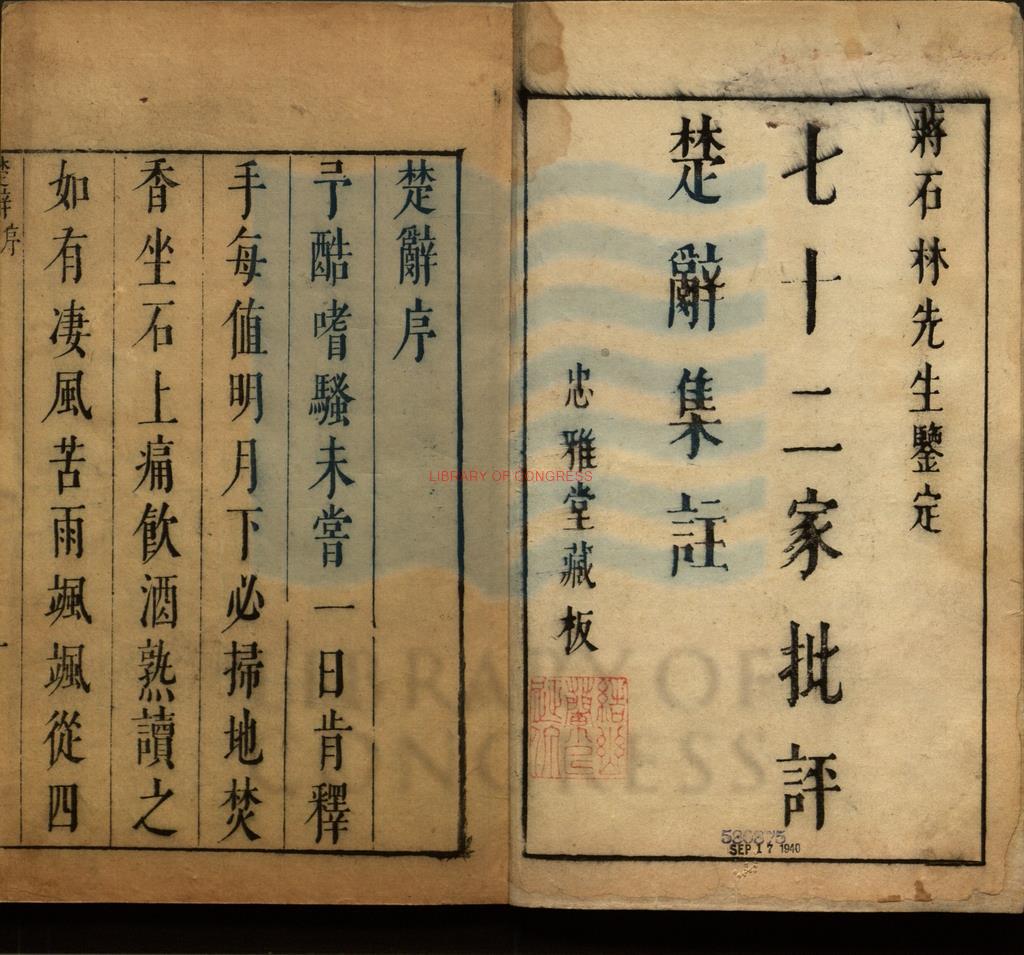 蔣石林先生鑒定
七十二家批評
楚辭集註
忠雅堂藏板
楚辭序
予酷嗜騷未嘗一日肯釋
手每值明月下必掃地焚
香坐石上痛飲酒熟讀之
如有凄風苦雨颯颯從四
楚辭序
一
LIBRARY OF CONGRESS
LIBRARY OF CONGRESS
SEP 17 1940